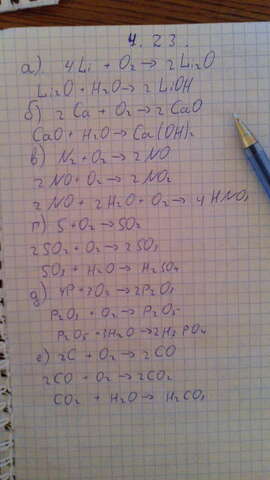 4.23.
а) 4Li + O₂ → 2Li₂O
Li₂O + H₂O → 2LiOH
б) 2Ca + O₂ → 2CaO
CaO + H₂O → Ca(OH)₂
в) N₂ + O₂ → 2NO
2NO + O₂ → 2NO₂
2NO + 2H₂O + O₂ → 4HNO₃
г) S + O₂ → SO₂
2SO₂ + O₂ → 2SO₃
SO₃ + H₂O → H₂SO₄
д) 4P + 3O₂ → 2P₂O₃
P₂O₃ + O₂ → P₂O₅
P₂O₅ + 3H₂O → 2H₃PO₄
е) 2C + O₂ → 2CO
2CO + O₂ → 2CO₂
CO₂ + H₂O → H₂CO₃